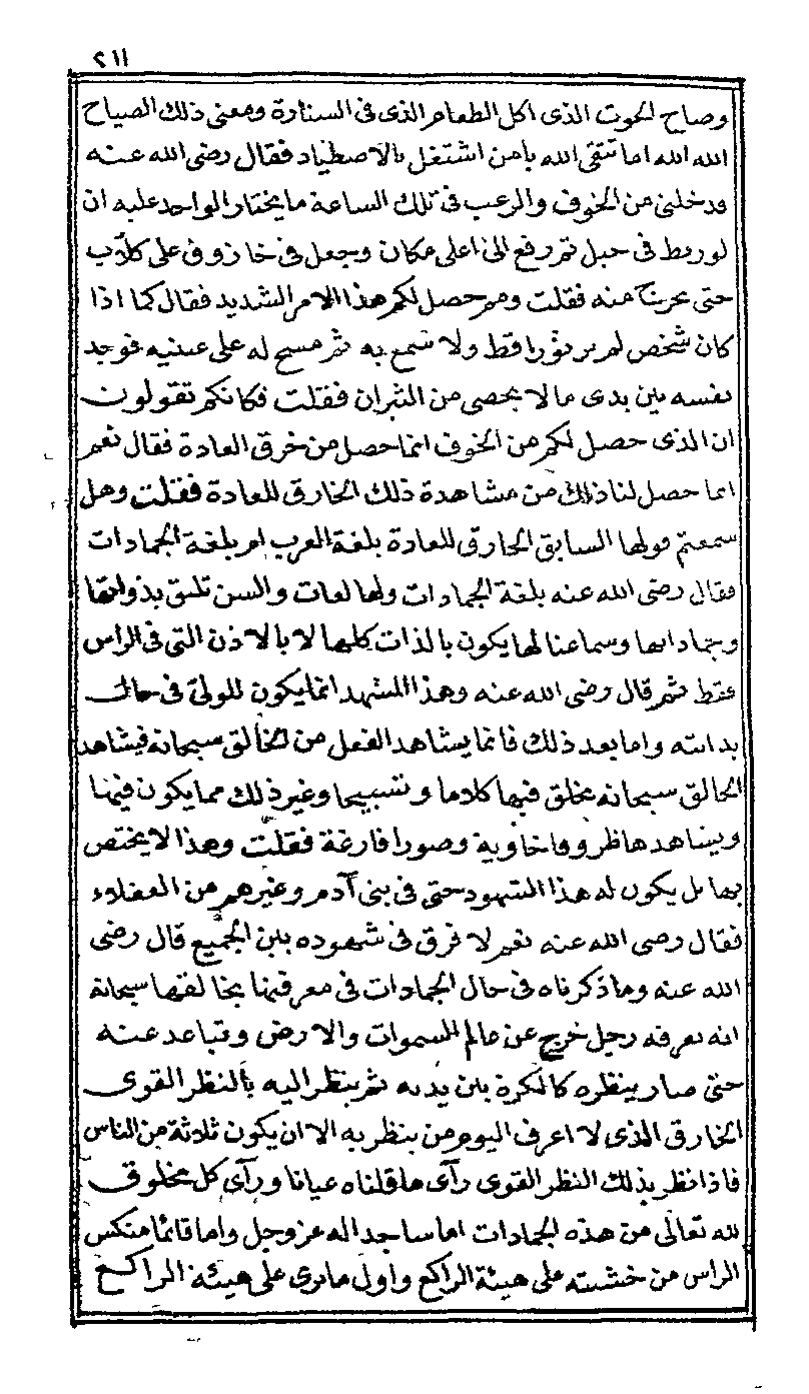 ٢١١
وصاح الحوت الذى اكل الطعام الذى فى السنارة ومعنى ذلك الصياح
الله الله اما تتقى الله يا من اشتغل بالاصطياد فقال رضى الله عنه
فدخلنى من الخوف والرعب فى تلك الساعة ما يختار الواحد عليه ان
لو ربط فى حبل ثم رفع الى اعلى مكان وجعل فى خازوق على كلاب
حتى يخرج منه فقلت ومم حصل لكم هذا الامر الشديد فقال كما اذا
كان شخص لم ير ثورا قط ولا سمع به ثم مسح له على عينيه فوجد
نفسه بين يدى ما لا يحصى من الثيران فقلت فكانكم تقولون
ان الذى حصل لكم من الخوف انما حصل من خرق العادة فقال نعم
انما حصل لنا ذلك من مشاهدة ذلك الخارق للعادة فقلت وهل
سمعتم قولها السابق الخارق للعادة بلغة العرب ام بلغة الجمادات
فقال رضى الله عنه بلغة الجمادات ولها لغات والسن تليق بذواتها
وجماداتها وسماعنا لها يكون بالذات كلها لا بالاذن التى فى الراس
فقط ثم قال رضى الله عنه وهذا المشهد انما يكون للولى فى حال
بدايته واما بعد ذلك فانما يشاهد الفعل من الخالق سبحانه فيشاهد
الخالق سبحانه يخلق فيها كلاما وتسبيحا وغير ذلك مما يكون فيها
ويشاهدها ظروفا خاوية وصورا فارغة فقلت وهذا لا يختص
بها بل يكون له هذا الشهود حتى فى بنى آدم وغيرهم من العقلاء
فقال رضى الله عنه نعم لا فرق فى شهوده بين الجميع قال رضى
الله عنه وما ذكرناه فى حال الجمادات فى معرفتها بخالقها سبحانه
انه يعرفه رجل خرج عن عالم السموات والارض وتباعد عنه
حتى صار ينظره كالكرة بين يديه ثم ينظر اليه بالنظر القوى
الخارق الذى لا اعرف اليوم من ينظر به الا ان يكون ثلاثة من الناس
فاذا نظر بذلك النظر القوى رآى ما قلناه عيانا ورآى كل مخلوق
لله تعالى من هذه الجمادات اما ساجدا له عز وجل واما قائما منكس
الراس من خشيته على هيئة الراكع واول ما يرى على هيئة الراكع